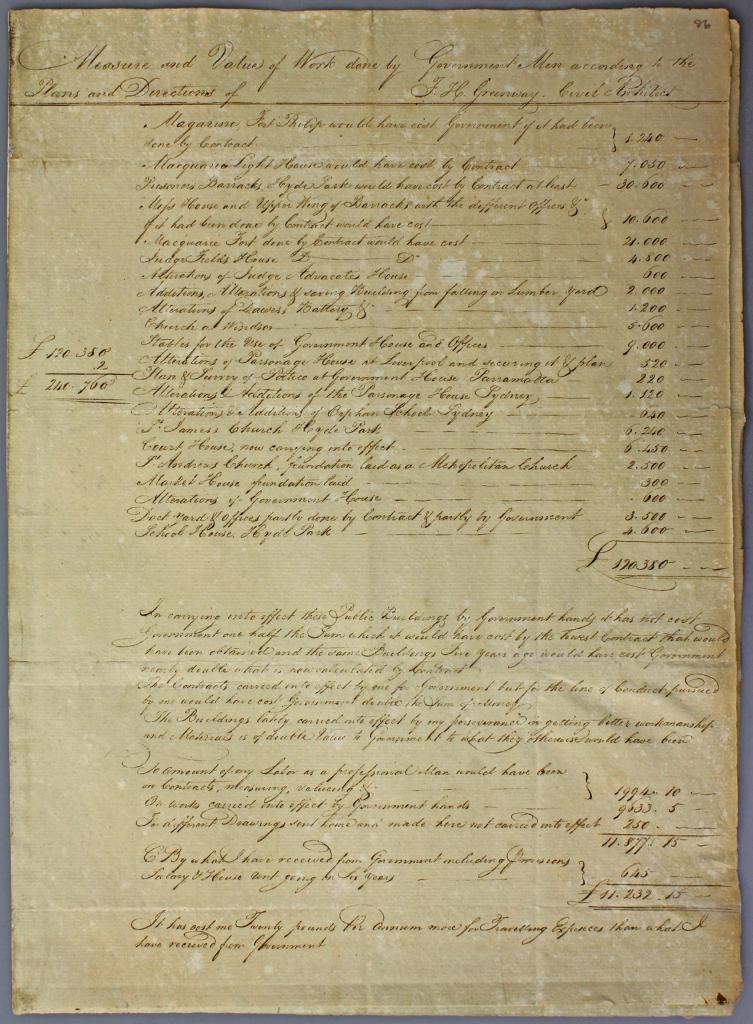 86
Measure and Value of Work done by Government Men according to the
Plans and Directions of F. H. Greenway. Civil Architect
Magazine, Fort Philip would have cost Government if it had been
done by Contract } 1.240
Macquarie Light House would have cost by Contract 7.050
Prisoners Barracks, Hyde Park would have cost by Contract at least 30.600
Mess House and Upper Wing of Barracks with the different Offices &c
if it had been done by Contract would have cost } 10.600
Macquarie Fort done by Contract would have cost 21.000
Judge Fields House Do Do 4.800
Alterations of Judge Advocates House 600
Additions, Alterations & saving Building from falling in Lumber Yard 2.000
Alterations of Dawes's Battery &c 1.200
Church at Windsor 5.600
Stables for the Use of Government House and Offices 9.000
£ 120.380
Alterations of Parsonage House at Liverpool and securing it & plan 520
2
Plan & Survey of Portico at Government House Parramatta 220
£ 240.760
Alterations & Additions of the Parsonage House Sydney 1.120
Alterations & Addition of Orphan School Sydney 640
St. James's Church Hyde Park 6.240
Court House, now carrying into effect 6.450
St. Andrews Church, foundation laid as a Metropolitan Church 2.500
Market House foundation laid 300
Alterations of Government House 600
Dock Yard & Offices partly done by Contract & partly by Government 3.500
School House, Hyde Park 4.600
£ 120.380
In carrying into effect these Public Buildings by Government hands it has not cost
Government one half the Sum which it would have cost by the lowest Contract that would
have been obtained and the same Buildings Five years ago would have cost Government
nearly double what is now calculated by Contract
The Contracts carried into effect by me for Government but for the line of Conduct pursued
by me would have cost Government double the Sum of Money
The Buildings lately carried into effect by my perseverance in getting better workmanship
and Materials is of double Value to Government to what they otherwise would have been
To amount of my Labor as a professional Man would have been
on Contracts, measuring, valueing &c } 1994. 10
On works carried into effect by Government hands 9633. 5
For different Drawings sent home and made here not carried into effect 250
11.877. 15
By what I have received from Government including Provisions
Salary & House rent going on Six Years } 645
£11.232. 15
It has cost me Twenty pounds Per Annum more for Travelling Expences than what I
have received from Government